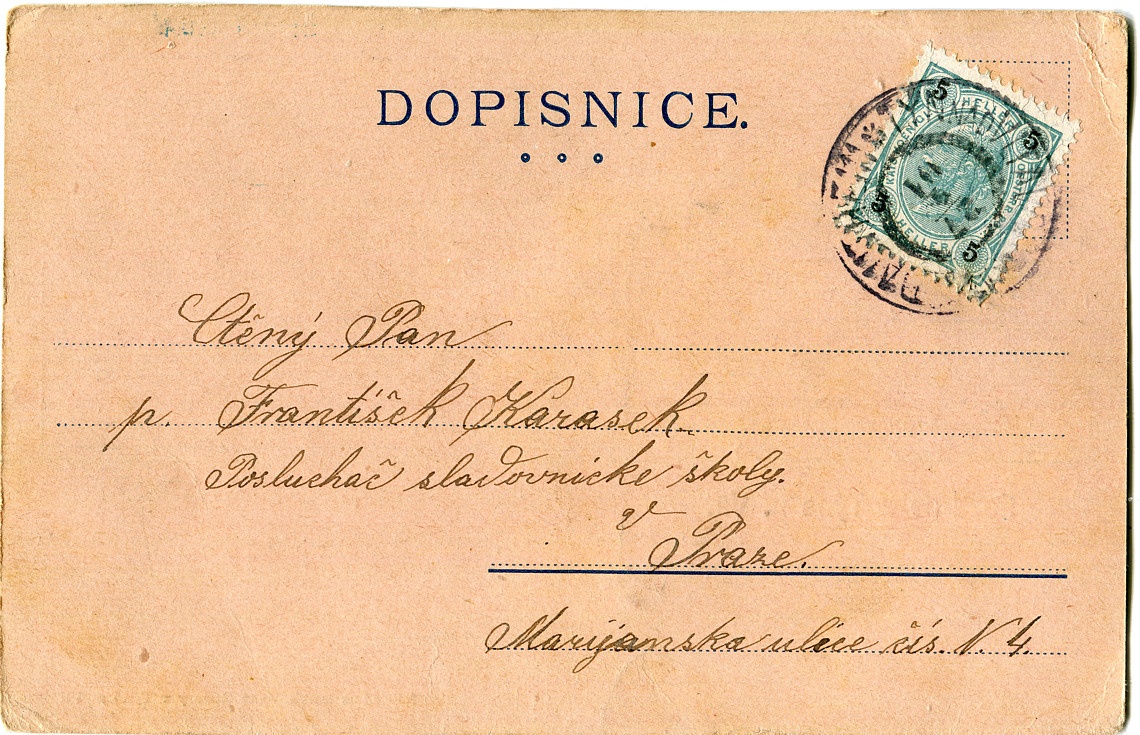 DOPISNICE.
5 HELLER 5
5 HELLER 5
Ctěný Pan
p. František Karasek.
Posluchač sladovnicke školy.
v
Praze.
Marijamska ulice čís. N. 4.